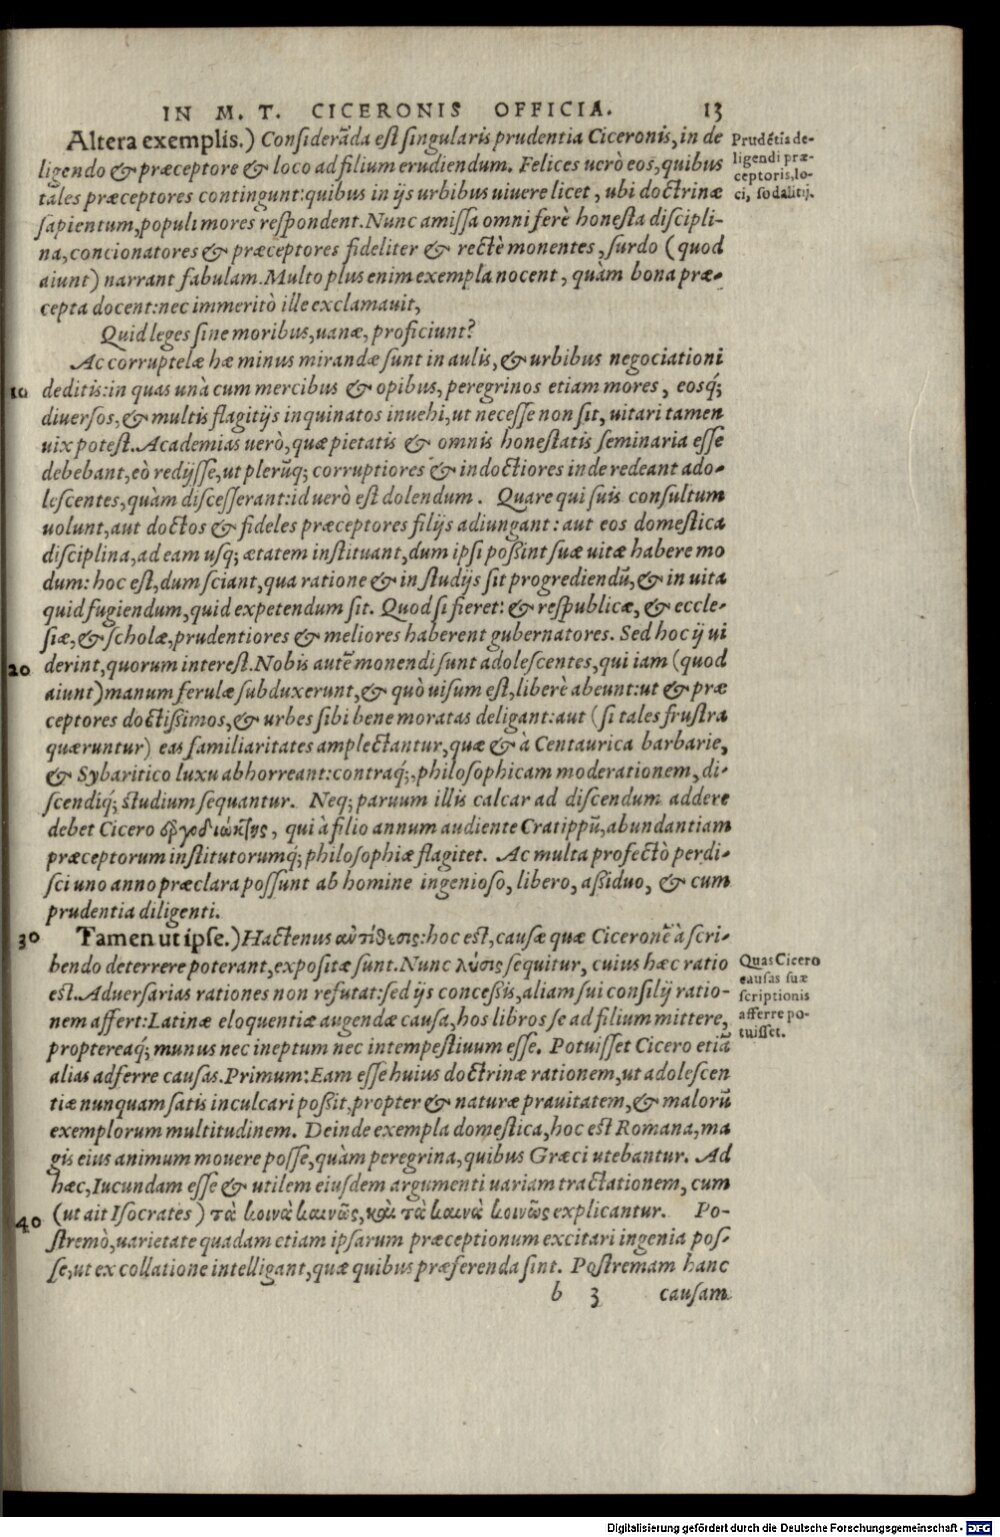 IN M. T. CICERONIS OFFICIA. 13
Altera exemplis.) Considerāda est singularis prudentia Ciceronis, in de
ligendo & præceptore & loco ad filium erudiendum. Felices uerò eos, quibus
tales præceptores contingunt: quibus in ijs urbibus uiuere licet, ubi doctrinæ
sapientum, populi mores respondent. Nunc amissa omni ferè honesta discipli-
na, concionatores & præceptores fideliter & rectè monentes, surdo (quod
aiunt) narrant fabulam. Multo plus enim exempla nocent, quàm bona præ-
cepta docent: nec immeritò ille exclamauit,
Quid leges sine moribus, uanæ, proficiunt?
Ac corruptelæ hæ minus mirandæ sunt in aulis, & urbibus negociationi
10 deditis: in quas unà cum mercibus & opibus, peregrinos etiam mores, eosq́;
diuersos, & multis flagitijs inquinatos inuehi, ut necesse non sit, uitari tamen
uix potest. Academias uerò, quæ pietatis & omnis honestatis seminaria esse
debebant, eò redijsse, ut plerūq; corruptiores & indoctiores inde redeant ado-
lescentes, quàm discesserant: id uerò est dolendum. Quare qui suis consultum
uolunt, aut doctos & fideles præceptores filijs adiungant: aut eos domestica
disciplina, ad eam usq; ætatem instituant, dum ipsi poßint suæ uitæ habere mo
dum: hoc est, dum sciant, qua ratione & in studijs sit progrediendū, & in uita
quid fugiendum, quid expetendum sit. Quod si fieret: & respublicæ, & eccle-
siæ, & scholæ, prudentiores & meliores haberent gubernatores. Sed hoc ij ui
20 derint, quorum interest. Nobis autē monendi sunt adolescentes, qui iam (quod
aiunt) manum ferulæ subduxerunt, & quò uisum est, liberè abeunt: ut & præ
ceptores doctißimos, & urbes sibi bene moratas deligant: aut (si tales frustra
quæruntur) eas familiaritates amplectantur, quæ & à Centaurica barbarie,
& Sybaritico luxu abhorreant: contraq́;, philosophicam moderationem, di-
scendiq́; studium sequantur. Neq; paruum illis calcar ad discendum addere
debet Cicero ἐργοδιώκτης, qui à filio annum audiente Cratippū, abundantiam
præceptorum institutorumq́; philosophiæ flagitet. Ac multa profectò perdi-
sci uno anno præclara possunt ab homine ingenioso, libero, aßiduo, & cum
prudentia diligenti.
30 Tamen ut ipse.) Hactenus ἀντίθεσις: hoc est, causæ quæ Ciceronē à scri-
bendo deterrere poterant, expositæ sunt. Nunc λύσις sequitur, cuius hæc ratio
est. Aduersarias rationes non refutat: sed ijs conceßis, aliam sui consilij ratio-
nem affert: Latinæ eloquentiæ augendæ causa, hos libros se ad filium mittere,
proptereaq́; munus nec ineptum nec intempestiuum esse. Potuisset Cicero etiā
alias adferre causas. Primum: Eam esse huius doctrinæ rationem, ut adolescen
tiæ nunquam satis inculcari poßit, propter & naturæ prauitatem, & malorū
exemplorum multitudinem. Deinde exempla domestica, hoc est Romana, ma
gis eius animum mouere posse, quàm peregrina, quibus Græci utebantur. Ad
hæc, Iucundam esse & utilem eiusdem argumenti uariam tractationem, cum
40 (ut ait Isocrates) τὰ κοινὰ καινῶς, καὶ τὰ καινὰ κοινῶς explicantur. Po-
stremò, uarietate quadam etiam ipsarum præceptionum excitari ingenia pos-
se, ut ex collatione intelligant, quæ quibus præferenda sint. Postremam hanc
b 3 causam
Prudētia de-
ligendi præ-
ceptoris, lo-
ci, sodalitij.
Quas Cicero
causas suæ
scriptionis
afferre po-
tuisset.
Digitalisierung gefördert durch die Deutsche Forschungsgemeinschaft - DFG